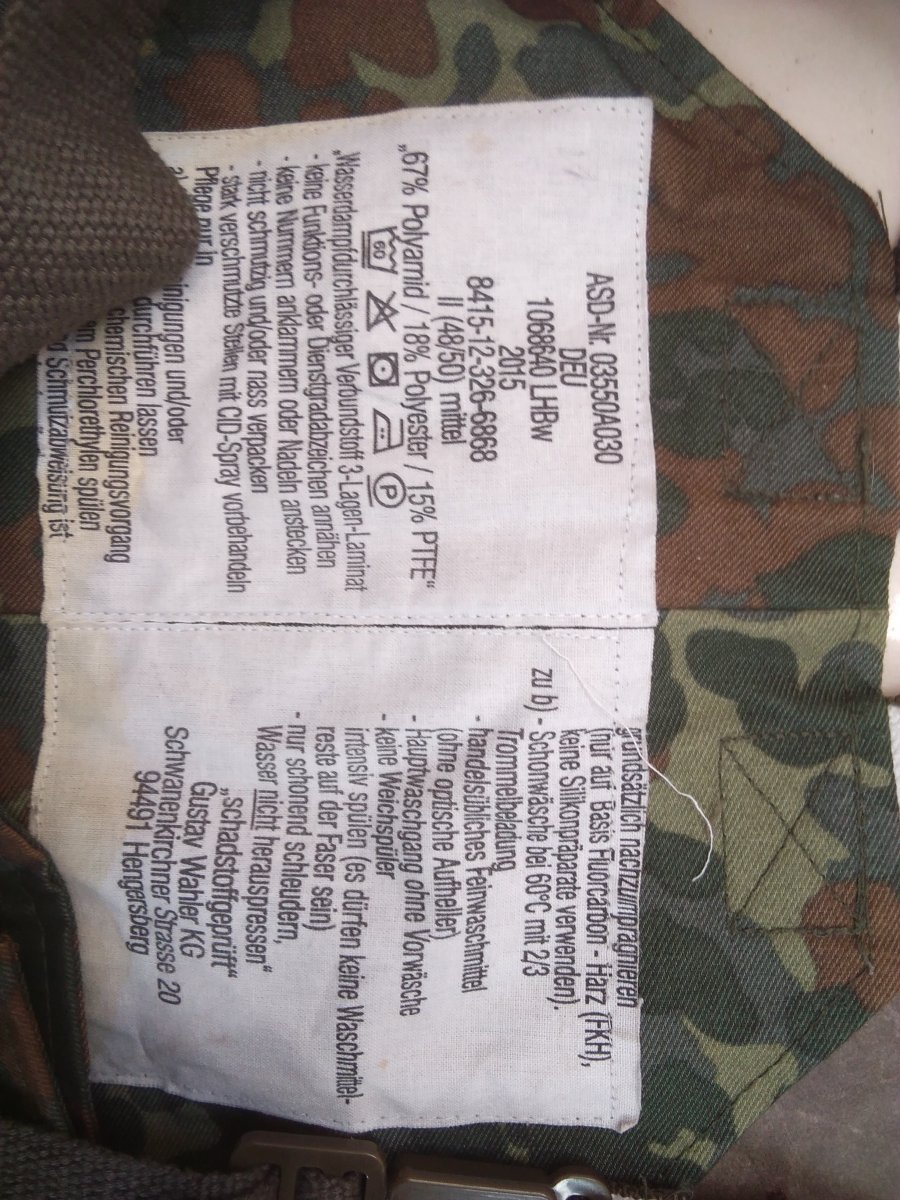 ASD-Nr. 03550A030
DEU
1068640 LHBw
2015
8415-12-326-6868
II (48/50) mittel
„67% Polyamid / 18% Polyester / 15% PTFE“
60
P
„Wasserdampfdurchlässiger Verbundstoff 3-Lagen-Laminat
- keine Funktions- oder Dienstgradabzeichen annähen
- keine Nummern anklammern oder Nadeln anstecken
- nicht schmutzig und/oder nass verpacken
- stark verschmutzte Stellen mit CID-Spray vorbehandeln
Pflege nur in
und/oder
durchführen lassen
chemischen Reinigungsvorgang
Perchlorethylen spülen
Schmutzabweisung ist
grundsätzlich nachzuimprägnieren
(nur auf Basis Fluorcarbon - Harz (FKH),
keine Silikonpräparate verwenden).
zu b) - Schonwäsche bei 60°C mit 2/3
Trommelbeladung
- handelsübliches Feinwaschmittel
(ohne optische Aufheller)
- Hauptwaschgang ohne Vorwäsche
- keine Weichspüler
intensiv spülen (es dürfen keine Waschmittel-
reste auf der Faser sein)
- nur schonend schleudern,
Wasser nicht herauspressen“
„schadstoffgeprüft“
Gustav Wahler KG
Schwanenkirchner Strasse 20
94491 Hengersberg